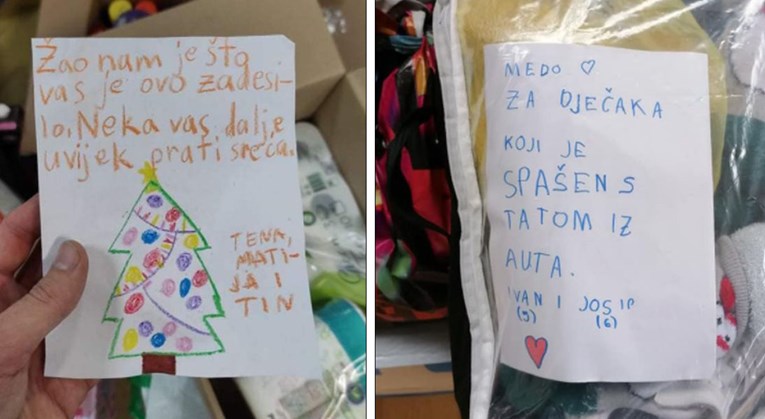 Žao nam je što
vas je ovo zadesi-
lo. Neka vas dalje
uvijek prati sreća.
TENA,
MATI-
JA I
TIN
MEDO ♡
ZA DJEČAKA
KOJI JE
SPAŠEN S
TATOM IZ
AUTA.
IVAN I JOSIP
(5) (6)